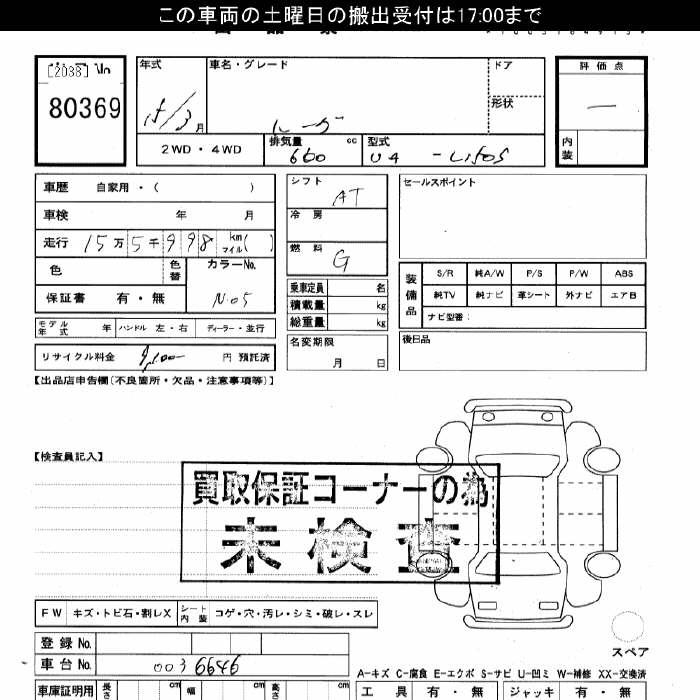 この車両の土曜日の搬出受付は17:00まで
[2038] No
80369
年式 車名・グレード ドア 評価点
15/3月 形状 ー
2WD・4WD 排気量 cc 型式 内装
660
車歴 自家用・( )
シフト AT
セールスポイント
車検 年 月
冷房
走行 15万5千998 km マイル( )
燃料 G
色 色替 カラーNo.
N-05
保証書 有・無
乗車定員 名
積載量 kg
総重量 kg
装備品 S/R 純A/W P/S P/W ABS
純TV 純ナビ 革シート 外ナビ エアB
ナビ型番:
モデル年式 年 ハンドル 左・右 ディーラー・並行
名変期限 月 日
後日品
リサイクル料金 円 預託済
【出品店申告欄(不良箇所・欠品・注意事項等)】
【検査員記入】
買取保証コーナーの為
未検査
FW キズ・トビ石・割レX シート内装 コゲ・穴・汚レ・シミ・破レ・スレ
スペア
登録 No.
車台 No. 003 6646
A-キズ C-腐食 E-エクボ S-サビ U-凹ミ W-補修 XX-交換済
車庫証明用 長さ cm 幅 cm 高さ cm
工具 有・無 ジャッキ 有・無